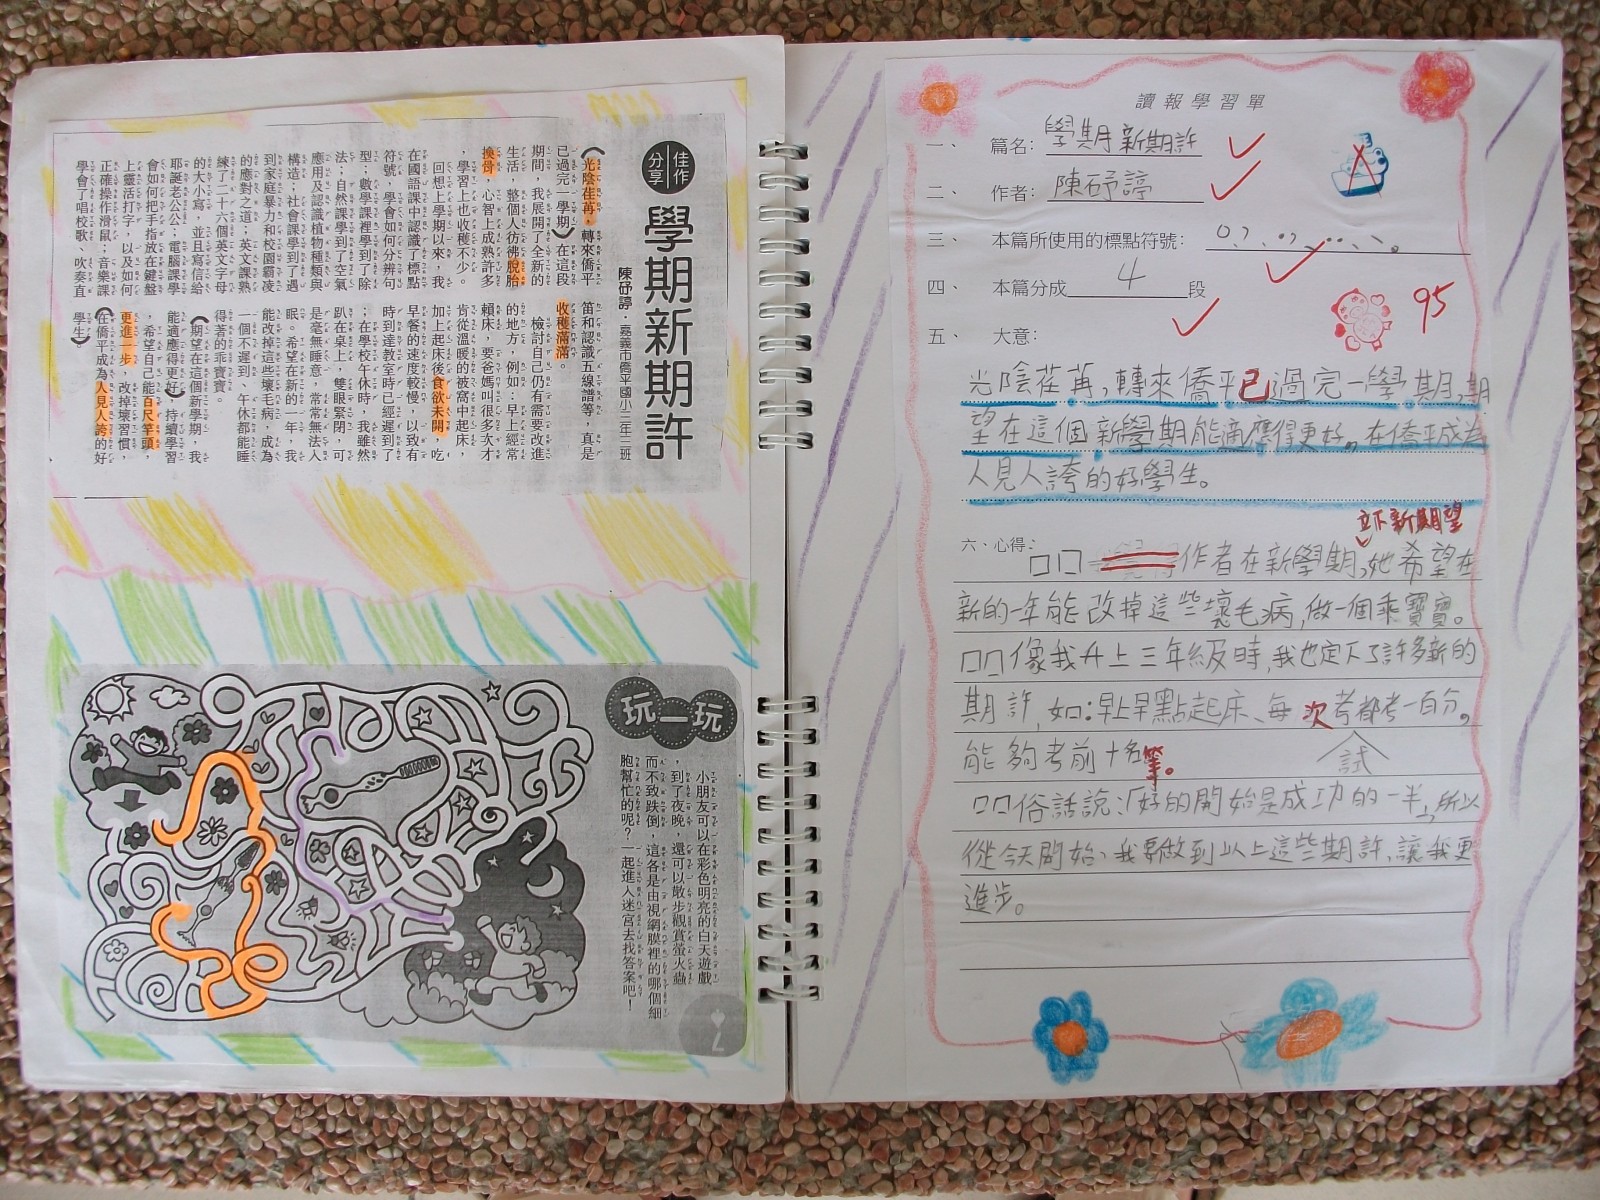 佳作分享
學期新期許
陳矷諄．嘉義市僑平國小三年三班
光陰荏苒，轉來僑平
已過完一學期，在這段
期間，我展開了全新的
生活，整個人彷彿脫胎
換骨，心智上成熟許多
，學習上也收穫不少。
回想上學期以來，我
在國語課中認識了標點
符號，學會如何分辨句
型；數學課裡學到了除
法；自然課學到了空氣
應用及認識植物種類與
構造；社會課學到了遇
到家庭暴力和校園霸凌
的應對之道；英文課熟
練了二十六個英文字母
的大小寫，並且寫信給
耶誕老公公；電腦課學
會如何把手指放在鍵盤
上靈活打字，以及如何
正確操作滑鼠；音樂課
學會了唱校歌、吹奏直
笛和認識五線譜等，真是
收穫滿滿。
檢討自己仍有需要改進
的地方，例如：早上經常
賴床，要爸媽叫很多次才
肯從溫暖的被窩中起床，
加上起床後食欲未開，吃
早餐的速度較慢，以致有
時到達教室時已經遲到了
；在學校午休時，我雖然
趴在桌上，雙眼緊閉，可
是毫無睡意，常常無法入
眠。希望在新的一年，我
能改掉這些壞毛病，成為
一個不遲到、午休都能睡
得著的乖寶寶。
期望在這個新學期，我
能適應得更好，持續學習
，希望自己能百尺竿頭，
更進一步，改掉壞習慣，
在僑平成為人見人誇的好
學生。
玩一玩
小朋友可以在彩色明亮的白天遊戲
，到了夜晚，還可以散步觀賞螢火蟲
而不致跌倒，這各是由視網膜裡的哪個細
胞幫忙的呢？一起進入迷宮去找答案吧！
2
讀報學習單
一、 篇名：學期新期許
二、 作者：陳矷諄
三、 本篇所使用的標點符號：
四、 本篇分成4段
95
五、 大意：
光陰荏苒，轉來僑平已過完一學期，期
望在這個新學期能適應得更好。在僑平成為
人見人誇的好學生。
立下新期望
六、心得：
□□作者在新學期，她希望在
新的一年能改掉這些壞毛病，做一個乖寶寶。
□□像我升上三年級時，我也定下了許多新的
期許，如：早上早點起床、每次考都考一百分，
試
能夠考前十名等。
□□俗話說：「好的開始是成功的一半」，所以
從今天開始、我要做到以上這些期許，讓我更
進步。